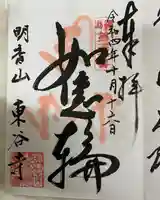 奉拝
令和四年十月十六日
如意輪
明音山
東谷寺